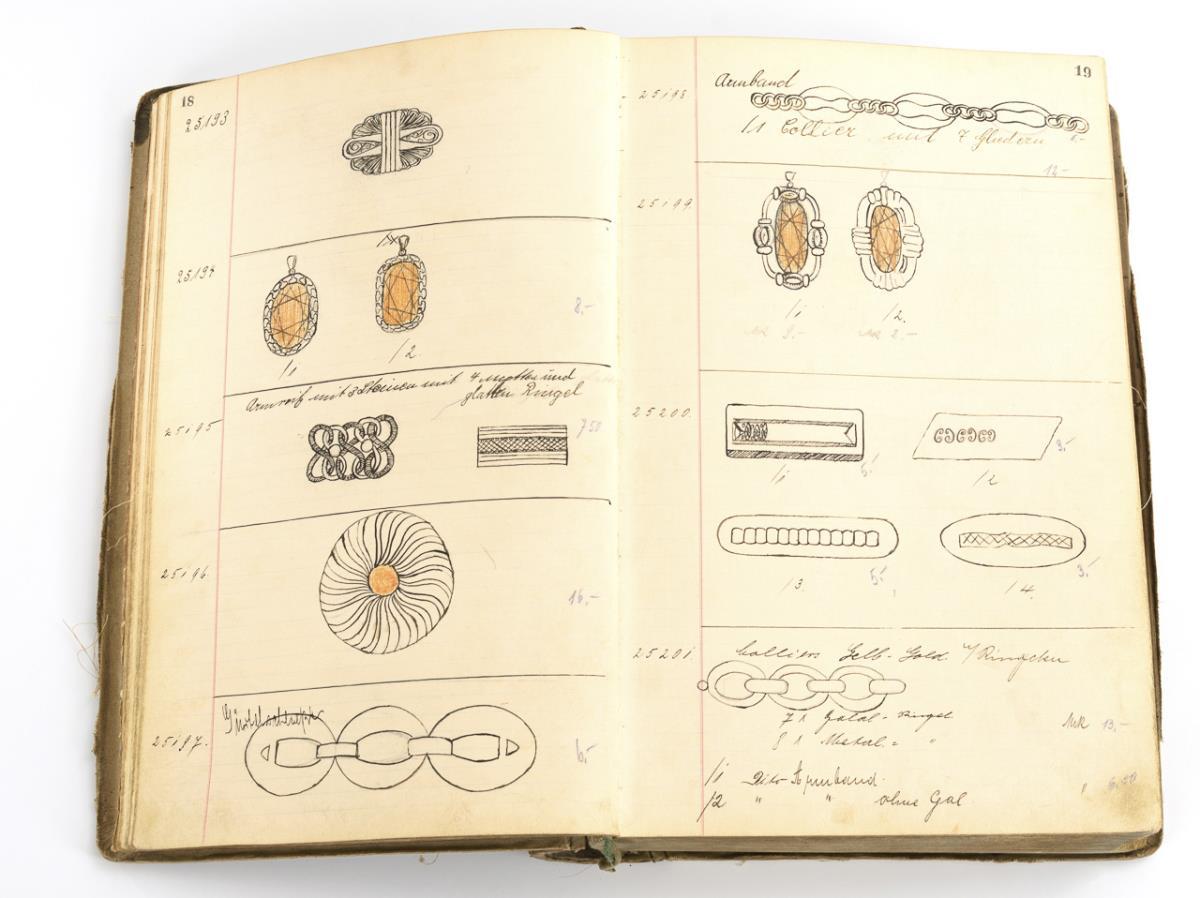 18
25193
25194
/1
/2.
8.-
Armreif mit 3 Steinen mit 4 und
glatten Ringel
25195
7 50
25196.
16.-
25197.
6.-
19
Armband
25198
/1 Collier mit 7 Gliedern
6.-
12.-
25199.
/1 /2.
Mk 9.- Mk 2.-
25200.
/1 5.- /2 3.-
/3. 5.- /4. 3.-
25201.
Colliers Gelb-Gold. Ringchen
7 x Galal-Ringel
8 x Metal. = "
Mk 13.-
/1 Dito Armband.
/2 " " ohne Gal
6.50